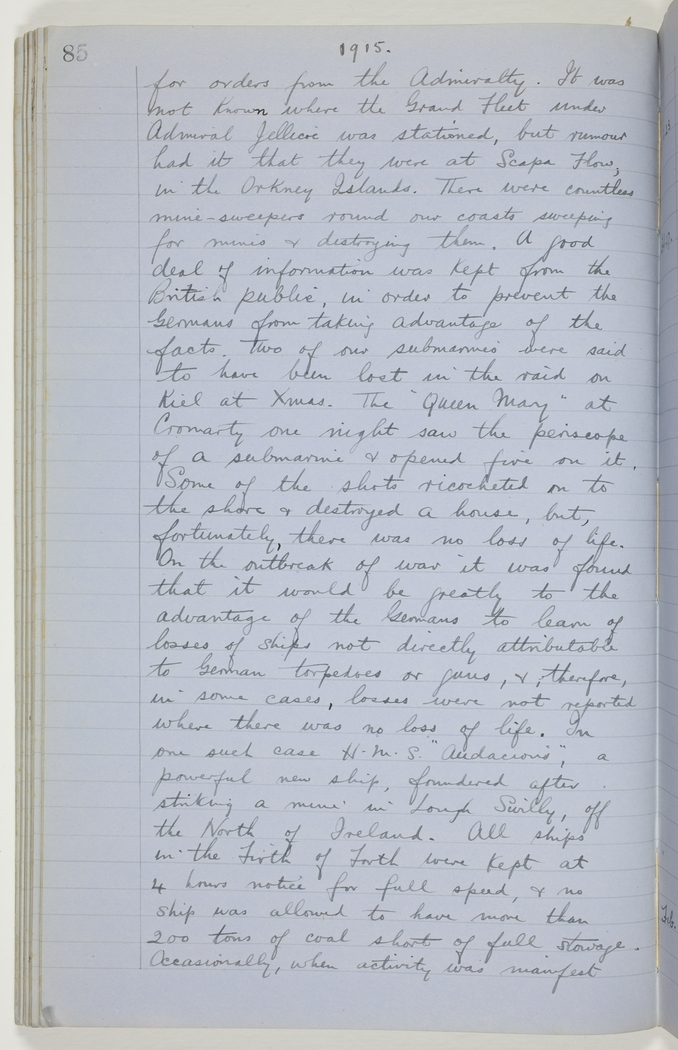 85
1915.
for orders from the Admiralty. It was
not known where the Grand Fleet under
Admiral Jellicoe was stationed, but rumour
had it that they were at Scapa Flow,
in the Orkney Islands. There were countless
mine-sweepers round our coasts sweeping
for mines & destroying them. A good
deal of information was kept from the
British public, in order to prevent the
Germans from taking advantage of the
facts. Two of our submarines were said
to have been lost in the raid on
Kiel at Xmas. The "Queen Mary" at
Cromarty one night saw the periscope
of a submarine & opened fire on it.
Some of the shots ricocheted on to
the shore & destroyed a house, but,
fortunately, there was no loss of life.
On the outbreak of war it was found
that it would be greatly to the
advantage of the Germans to learn of
losses of ships not directly attributable
to German torpedoes or guns, &, therefore,
in some cases, losses were not reported
where there was no loss of life. In
one such case H.M.S. "Audacious", a
powerful new ship, foundered after
striking a mine in Lough Swilly, off
the North of Ireland. All ships
in the Firth of Forth were kept at
4 hours notice for full speed, & no
ship was allowed to have more than
200 tons of coal short of full stowage.
Occasionally, when activity was manifest
Feb.